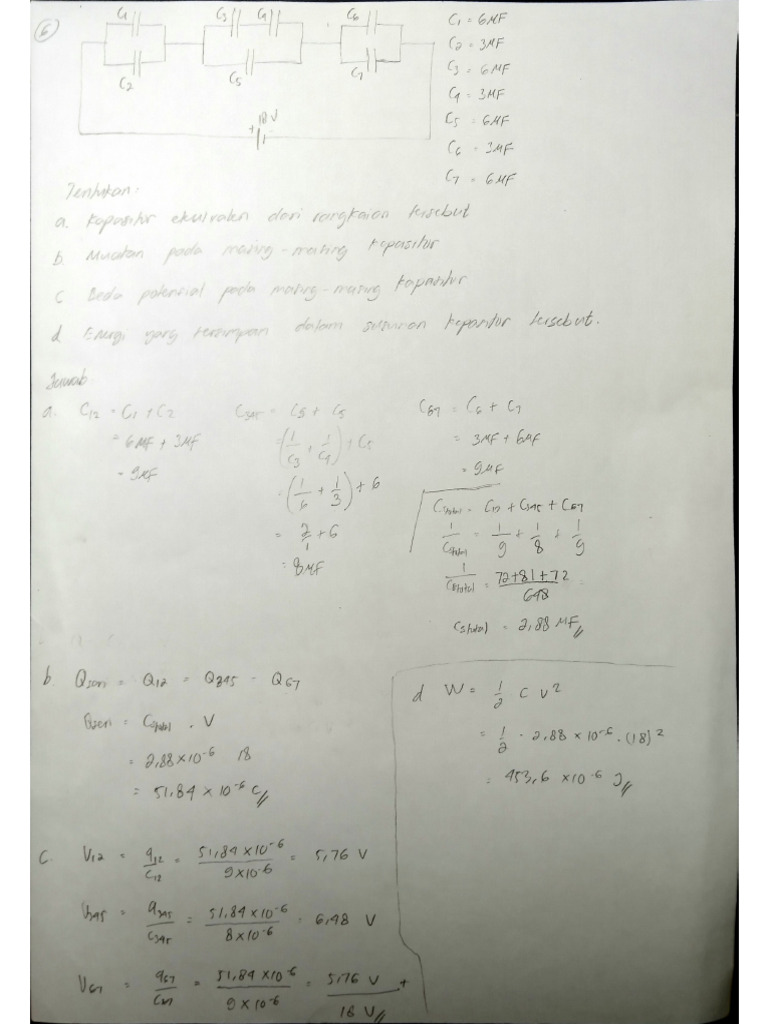 6
C1 C3 C4 C6
C2 C5 C7
18 V
+
C1 = 6MF
C2 = 3MF
C3 = 6MF
C4 = 3MF
C5 = 6MF
C6 = 3MF
C7 = 6MF
Tentukan :
a. Kapasitor ekuivalen dari rangkaian tersebut
b. Muatan pada masing-masing kapasitor
c Beda potensial pada masing-masing kapasitor
d Energi yang tersimpan dalam susunan kapasitor tersebut.
Jawab
a. C12 = C1 + C2
= 6MF + 3MF
= 9MF
C345 = CS + C5
= (1/C3 + 1/C4) + C5
= (1/6 + 1/3) + 6
= 2/1 + 6
= 8MF
C67 = C6 + C7
= 3MF + 6MF
= 9MF
Cstotal = C12 + C345 + C67
1/Cstotal = 1/9 + 1/8 + 1/9
1/Cstotal = 72+81+72/648
Cstotal = 2,88 MF//
b. Qseri = Q12 = Q345 = Q67
Qseri = Cstotal . V
= 2,88 × 10^-6 18
= 51,84 × 10^-6 C//
c. V12 = q12/C12 = 51,84 × 10^-6/9×10^-6 = 5,76 V
V345 = q345/C345 = 51,84 × 10^-6/8×10^-6 = 6,48 V
V67 = q67/C67 = 51,84 × 10^-6/9×10^-6 = 5,76 V +
18 V//
d W = 1/2 C V^2
= 1/2 . 2,88 × 10^-6 . (18)^2
= 453,6 × 10^-6 J//